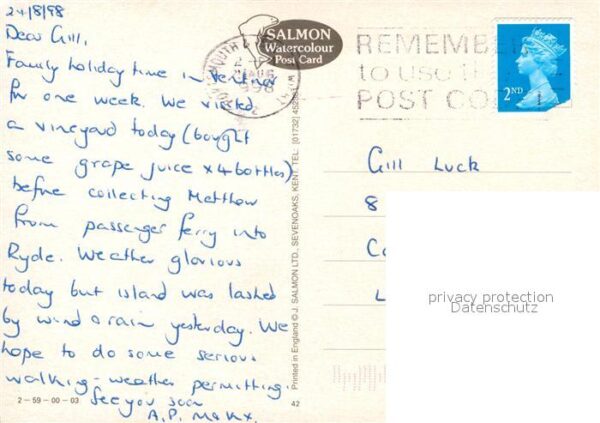 24/8/98
Dear Gill,
Family holiday time in Ventnor
for one week. We visited
a vineyard today (bought
some grape juice x 4 bottles)
before collecting Matthew
from passenger ferry into
Ryde. Weather glorious
today but island was lashed
by wind & rain yesterday. We
hope to do some serious
walking - weather permitting.
See you soon
2-59-00-03
SALMON
Watercolour
Post Card
Printed in England © J. SALMON LTD., SEVENOAKS, KENT. TEL: (01732)
42
REMEMBER
to use
POST CO
2ND
Gill Luck
8
Co
L
privacy protection
Datenschutz